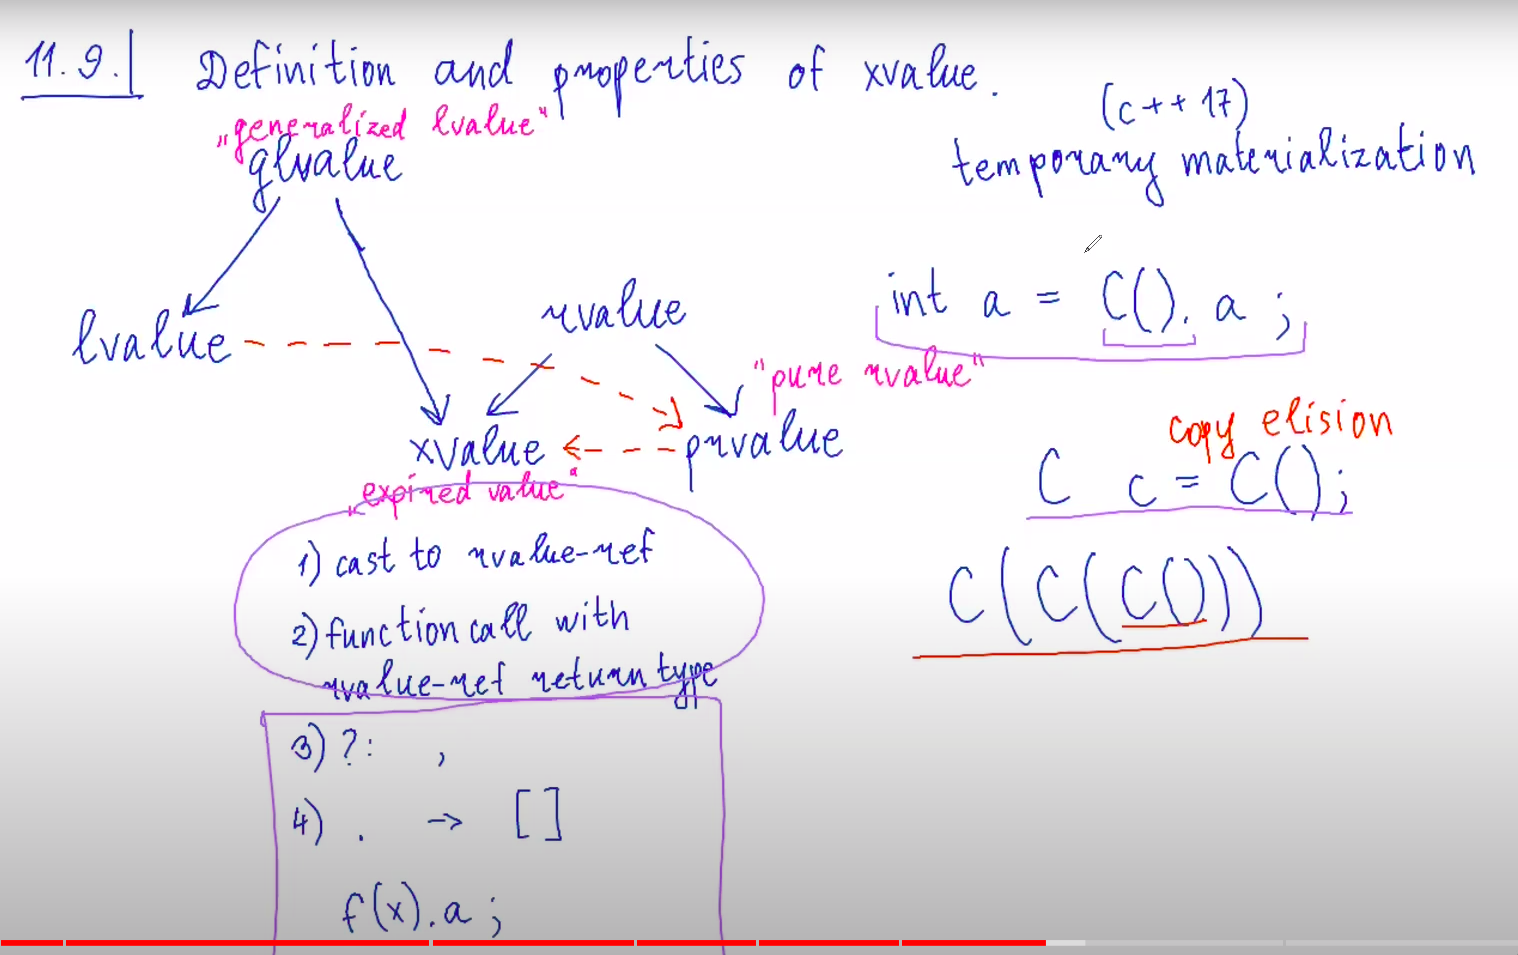 11.9. Definition and properties of xvalue.
„generalized lvalue"
glvalue
lvalue
rvalue
"pure rvalue"
xvalue
prvalue
„expired value"
1) cast to rvalue-ref
2) function call with
rvalue-ref return type
3) ?: ,
4) . -> []
f(x).a;
(c++17)
temporary materialization
int a = C().a;
copy elision
C c = C();
C(C(C()))